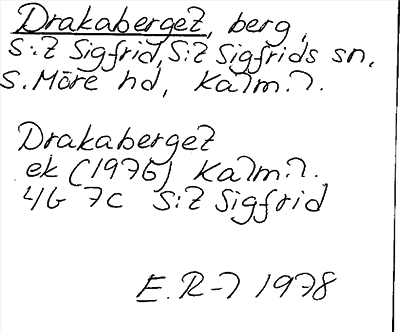 Drakaberget, berg,
S:t Sigfrid, S:t Sigfrids sn,
S. Möre hd, Kalm. l.
Drakaberget
ek (1976) Kalm. l.
4G 7c S:t Sigfrid
E. R-l 1978